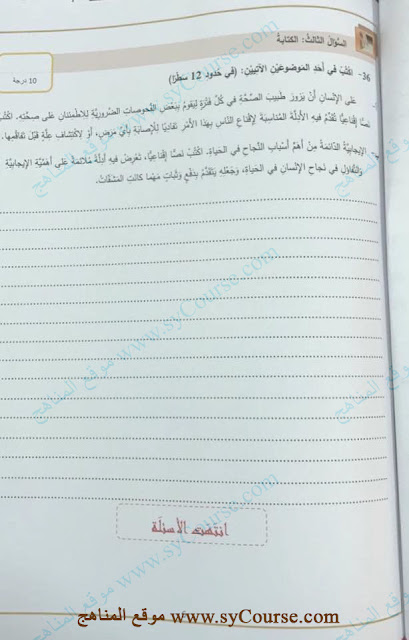 السؤال الثالث: الكتابة
36- اكتب في أحد الموضوعين الآتيين: (في حدود 12 سطرًا)
10 درجة
على الإنسان أن يزور طبيب الصحّة في كلّ فترة ليقوم ببعض الفحوصات الضروريّة للاطمئنان على صحّته. اكتب
نصًّا إقناعيًّا تقدّم فيه الأدلّة المناسبة لإقناع النّاس بهذا الأمر تفاديًا للإصابة بأيّ مرض، أو لاكتشاف علّة قبل تفاقمها.
الإيجابيّة الدّائمة من أهمّ أسباب النّجاح في الحياة. اكتب نصًّا إقناعيًّا، تعرض فيه أدلّة ملائمة على أهمّيّة الإيجابيّة
والتّفاؤل في نجاح الإنسان في الحياة، وجعله يتقدّم بدفع وثبات مهما كانت المشقّات.
انتهت الأسئلة
موقع المناهج www.syCourse.com